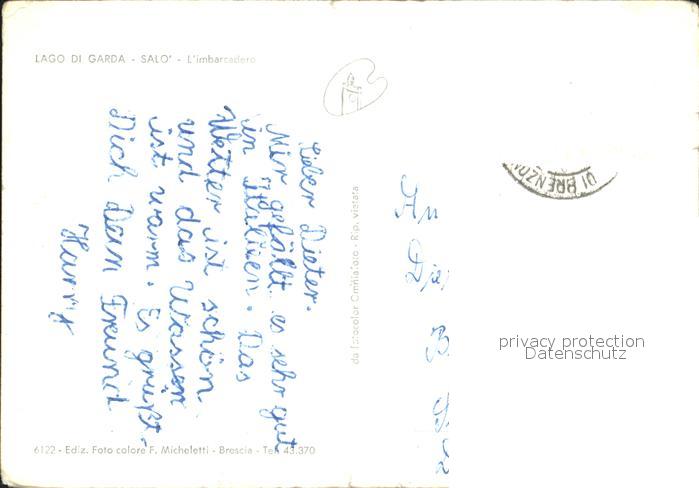 LAGO DI GARDA - SALO' - L'imbarcadero
Lieber Dieter.
Mir gefällt es sehr gut
in Italien. Das
Wetter ist schön.
und das Wasser
ist warm. Es grüßt.
Dich Dein Freund
Harry
da fotocolor Omniafoto - Rip. vietata
An
Die
B
DI BRENZON
privacy protection
Datenschutz
6122 - Ediz. Foto colore F. Micheletti - Brescia - Tel. 43.370